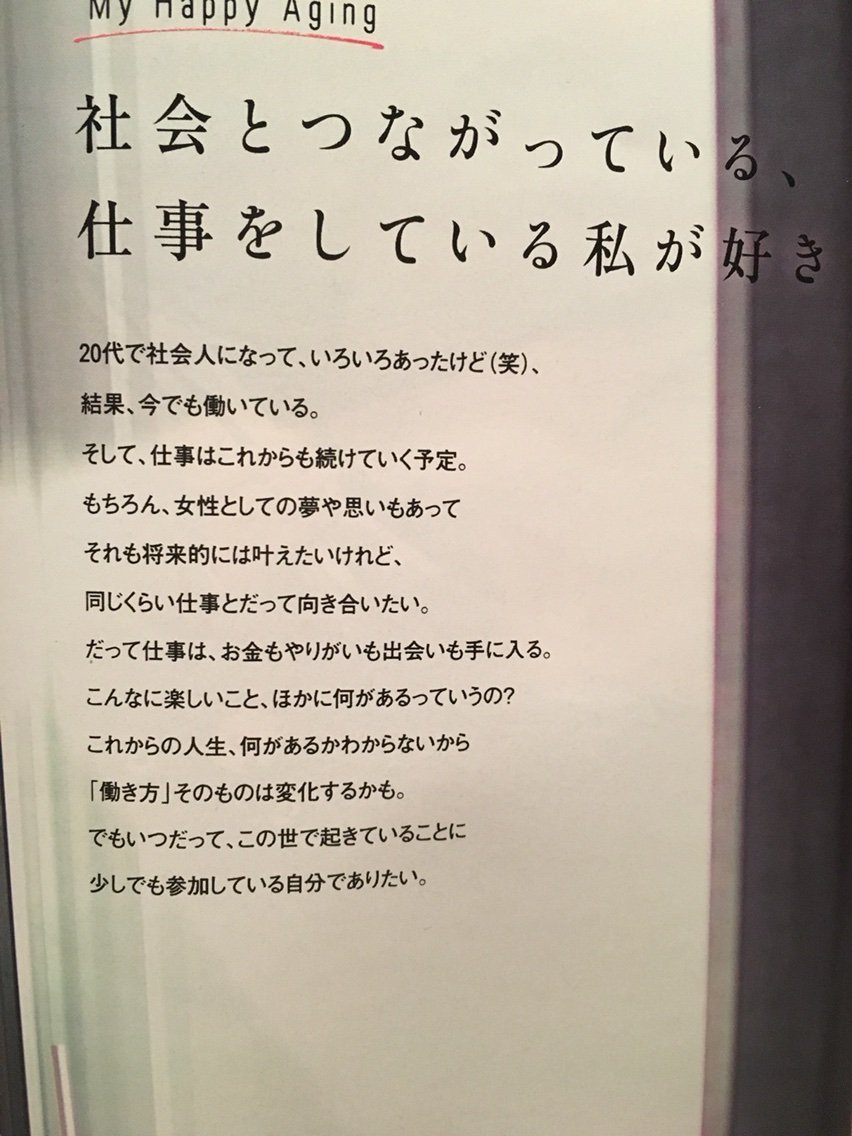 My Happy Aging
社会とつながっている、
仕事をしている私が好き
20代で社会人になって、いろいろあったけど(笑)、
結果、今でも働いている。
そして、仕事はこれからも続けていく予定。
もちろん、女性としての夢や思いもあって
それも将来的には叶えたいけれど、
同じくらい仕事とだって向き合いたい。
だって仕事は、お金もやりがいも出会いも手に入る。
こんなに楽しいこと、ほかに何があるっていうの?
これからの人生、何があるかわからないから
「働き方」そのものは変化するかも。
でもいつだって、この世で起きていることに
少しでも参加している自分でありたい。